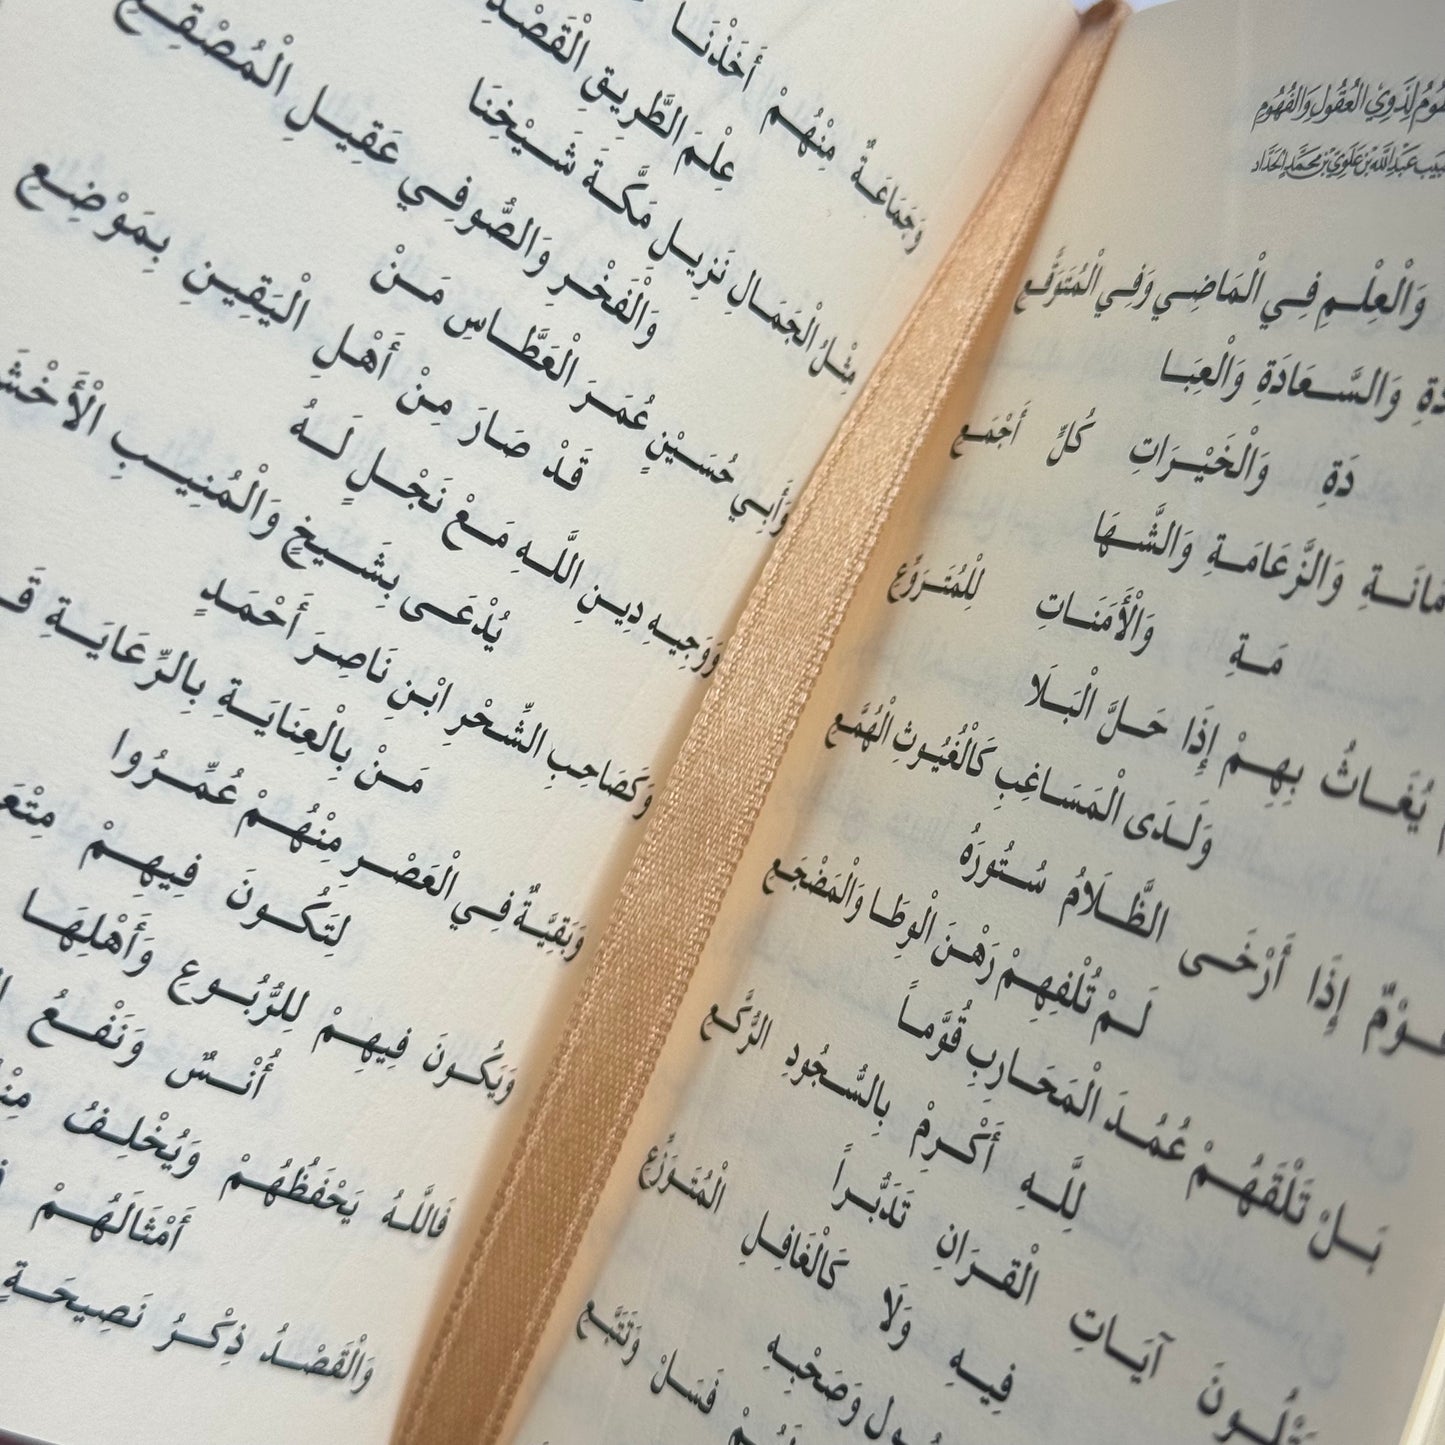 لِذَوِي الْعُقُولِ وَالْفُهُومِ
عَبْدِ اللَّهِ بْنِ عَلَوِي بْنِ مُحَمَّدٍ الْحَدَّادِ
وَالْعِلْمِ فِي الْمَاضِي وَفِي الْمُتَوَقَّعِ
وَالسَّعَادَةِ وَالْعِبَا
دَةِ وَالْخَيْرَاتِ كُلٍّ أَجْمَعِ
وَالزَّعَامَةِ وَالشَّهَا
مَةِ وَالْأَمَنَاتِ لِلْمُتَرَوِّعِ
يُغَاثُ بِهِمْ إِذَا حَلَّ الْبَلَا
وَلَدَى الْمَسَاغِبِ كَالْغُيُوثِ الْهُمَّعِ
إِذَا أَرْخَى الظَّلَامُ سُتُورَهُ
لَمْ تُلْفِهِمْ رَهْنَ الْوِطَا وَالْمَضْجَعِ
بَلْ تَلْقَهُمْ عُمُدَ الْمَحَارِبِ قُوَّماً
لِلَّهِ أَكْرِمْ بِالسُّجُودِ الرُّكَّعِ
آيَاتِ الْقُرَانِ تَدَبُّراً
فِيهِ وَلَا كَالْغَافِلِ الْمُتَوَزِّعِ
وَصَحْبِهِ
فَسَلْ وَتَتَبَّعِ
وَجَمَاعَةٌ مِنْهُمْ أَخَذْنَا
عِلْمَ الطَّرِيقِ الْقَصْدِ
مِثْلُ الْجَمَالِ نَزِيلِ مَكَّةَ شَيْخِنَا
وَالْفَخْرِ وَالصُّوفِي عَقِيلِ الْمُصْقِعِ
وَأَبِي حُسَيْنٍ عُمَرَ الْعَطَّاسِ مَنْ
قَدْ صَارَ مِنْ أَهْلِ الْيَقِينِ بِمَوْضِعِ
وَوَجِيهِ دِينِ اللَّهِ مَعْ نَجْلٍ لَهُ
يُدْعَى بِشَيْخٍ وَالْمُنِيبِ
وَكَصَاحِبِ الشِّحْرِ ابْنِ نَاصِرَ أَحْمَدٍ
مَنْ بِالْعِنَايَةِ بِالرِّعَايَةِ
وَبَقِيَّةٌ فِي الْعَصْرِ مِنْهُمْ عُمِّرُوا
لِتَكُونَ فِيهِمْ
وَيَكُونَ فِيهِمْ لِلرُّبُوعِ وَأَهْلِهَا
أُنْسٌ وَنَفْعُ
فَاللَّهُ يَحْفَظُهُمْ وَيُخْلِفُ
أَمْثَالَهُمْ
وَالْقَصْدُ ذِكْرُ نَصِيحَةٍ